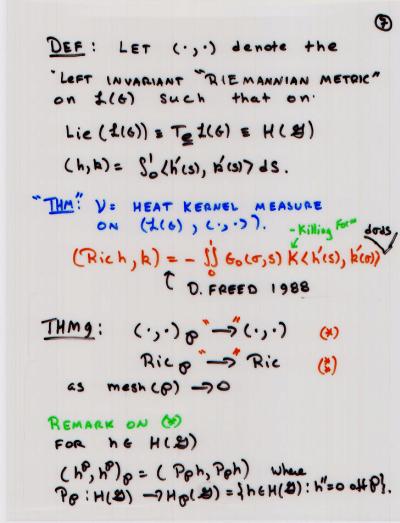 DEF: LET (·,·) denote the
"LEFT INVARIANT "RIEMANNIAN METRIC"
on L(G) such that on
Lie(L(G)) ≡ T_e L(G) ≡ H(𝔤)
(h,k) = ∫₀¹ <h'(s), k'(s)> ds.
"THM": ν = HEAT KERNEL MEASURE
ON (L(G), (·,·)).
- Killing Form
dσds
(Ric h, k) = - ∫∫₀¹ G₀(σ,s) K<h'(s), k'(σ)>
↑ D. FREED 1988
THM 9: (·,·)_P "→" (·,·) (*)
Ric_P "→" Ric (**)
as mesh(P) → 0
REMARK ON (*)
FOR h ∈ H(𝔤)
(h^P, h^P)_P = (P_P h, P_P h) where
P_P : H(𝔤) → H_P(𝔤) = {h ∈ H(𝔤) : h'' = 0 off P}.